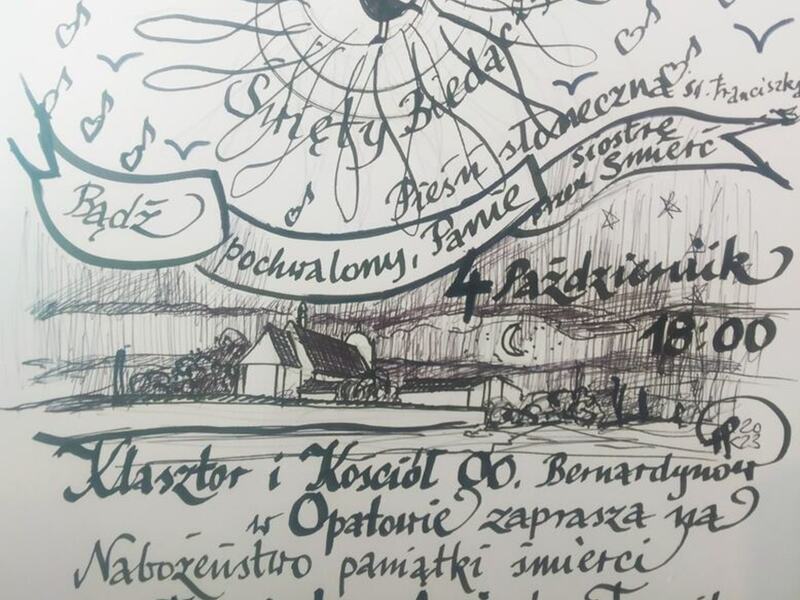 Święty Biedac
Pieśń słoneczna św. Franciszka
Bądź
pochwalony, Panie
przez siostrę
Śmierć
4 Październik
18:00
2023
Klasztor i Kościół OO. Bernardynów
w Opatowie zaprasza na
Nabożeństwo pamiątki śmierci